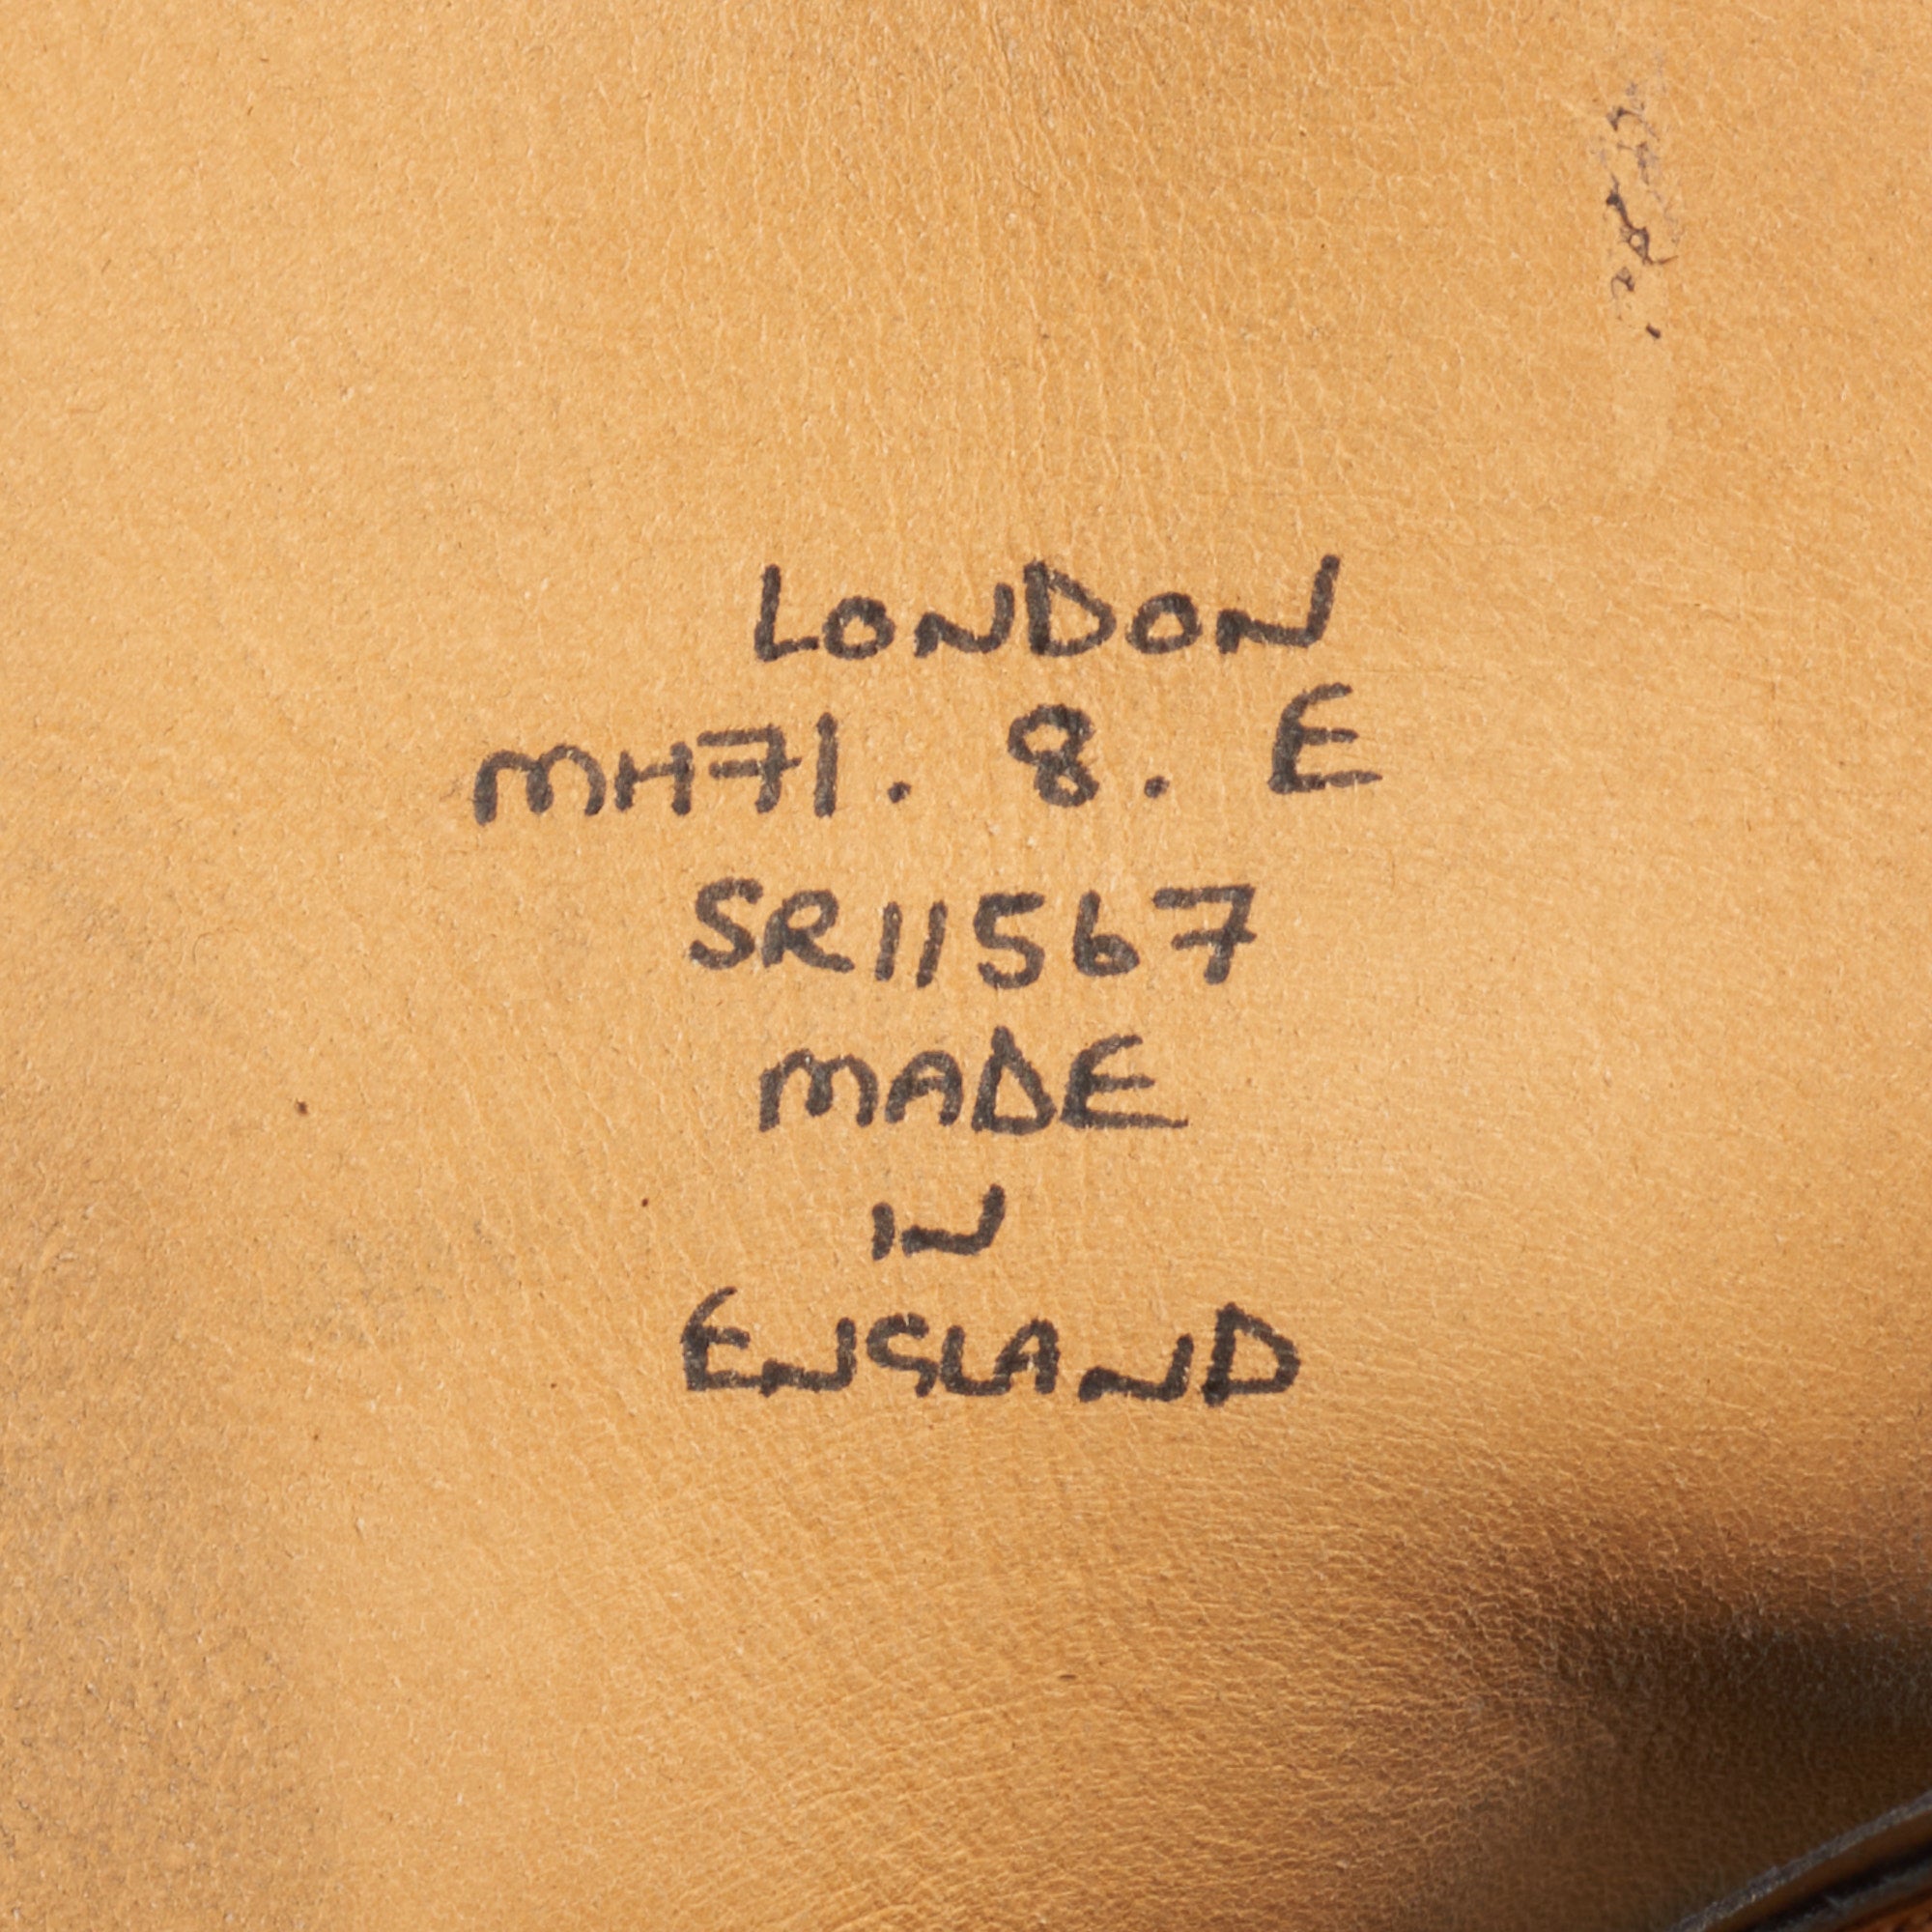 LONDON
MH71. 8. E
SR11567
MADE
IN
ENGLAND